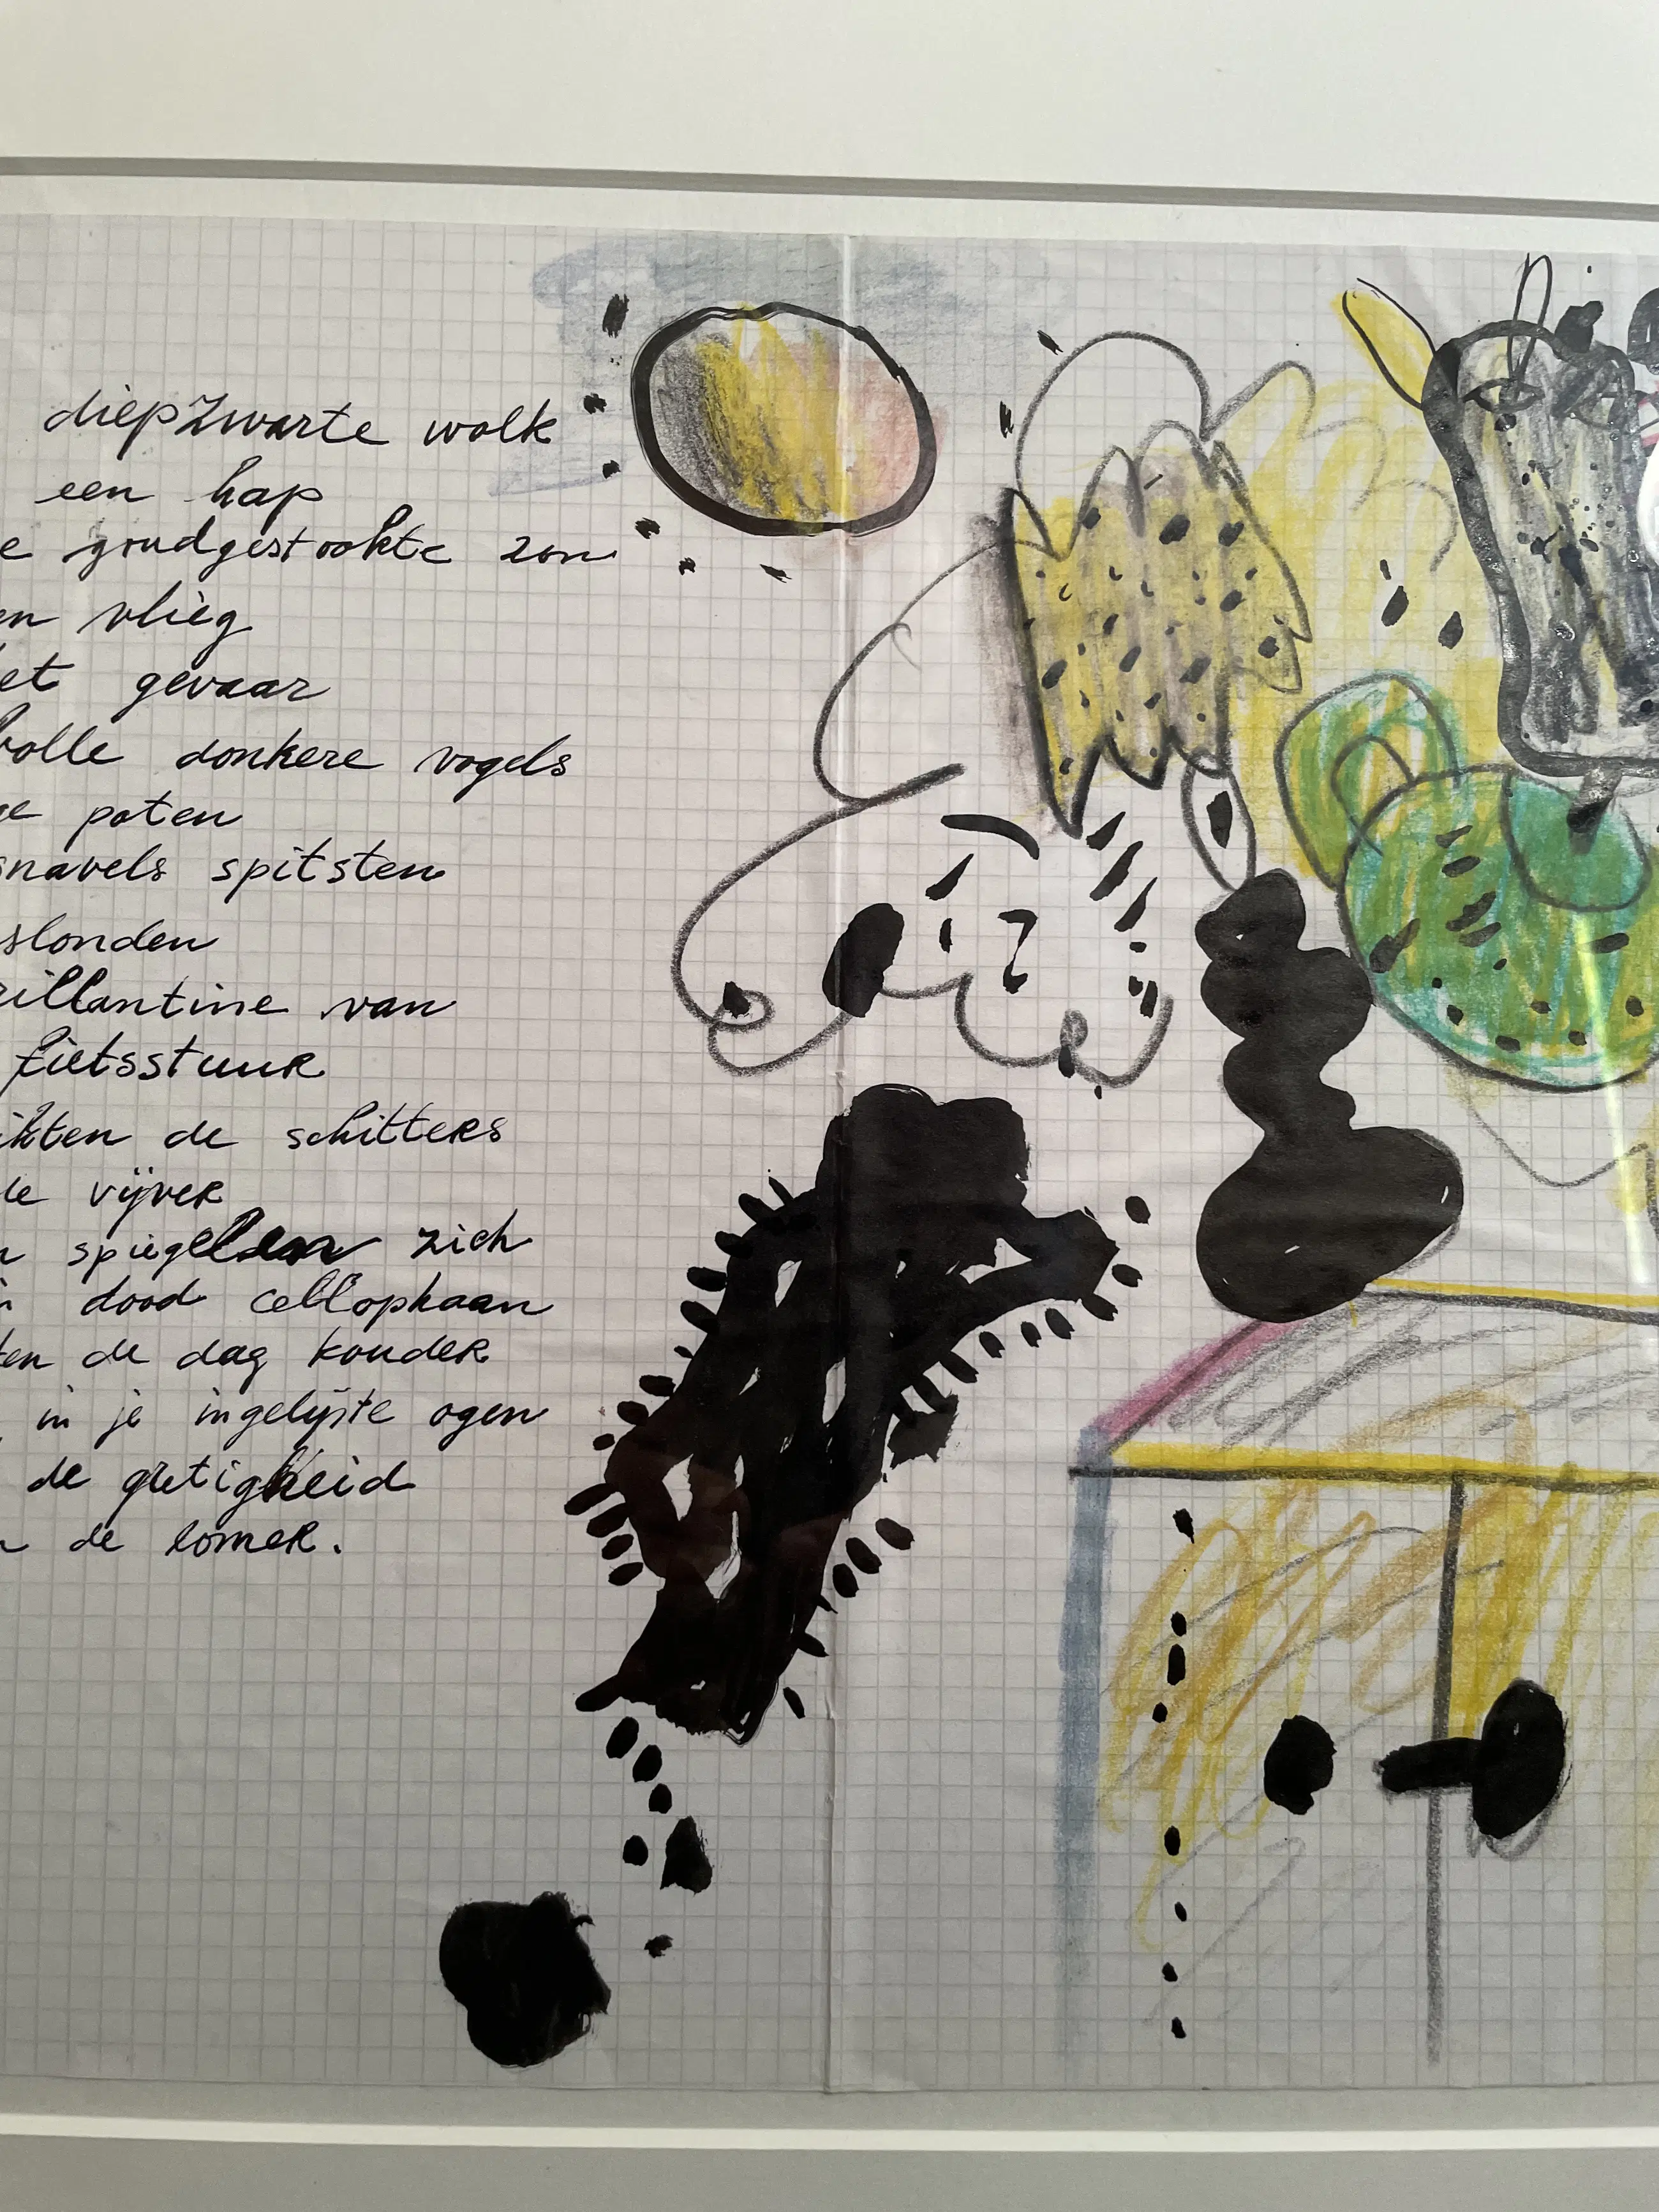 diepzwarte wolk
een hap
e goudgestookte zon
en vlieg
et gevaar
volle donkere vogels
ge poten
snavels spitsten
slonden
rillantine van
fietsstuur
ikten de schitters
de vijver
n spiegelden zich
dood cellophaan
ten de dag kouder
in je ingelijste ogen
de gretigheid
de lomer.